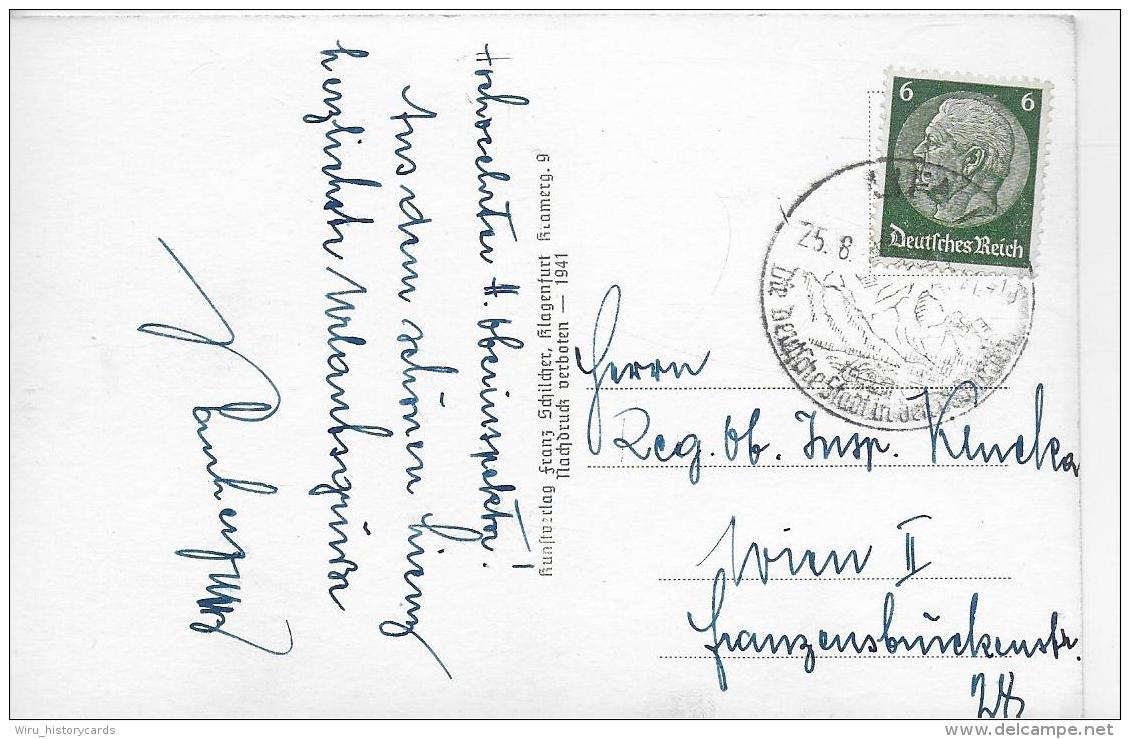 Hochgeehrter H. Oberinspektor!
Aus dem schönen Lienz
herzlichste Urlaubsgrüsse
Kunstverlag Franz Schilcher, Klagenfurt Kramerg. 9
Nachdruck verboten — 1941
6 6
Deutsches Reich
25.8
Die deutsche Stadt in den
Herrn
Reg. Ob. Insp. Klucka
Wien II
Franzensbrückenstr.
28
Wiru_historycards
delcampe.net